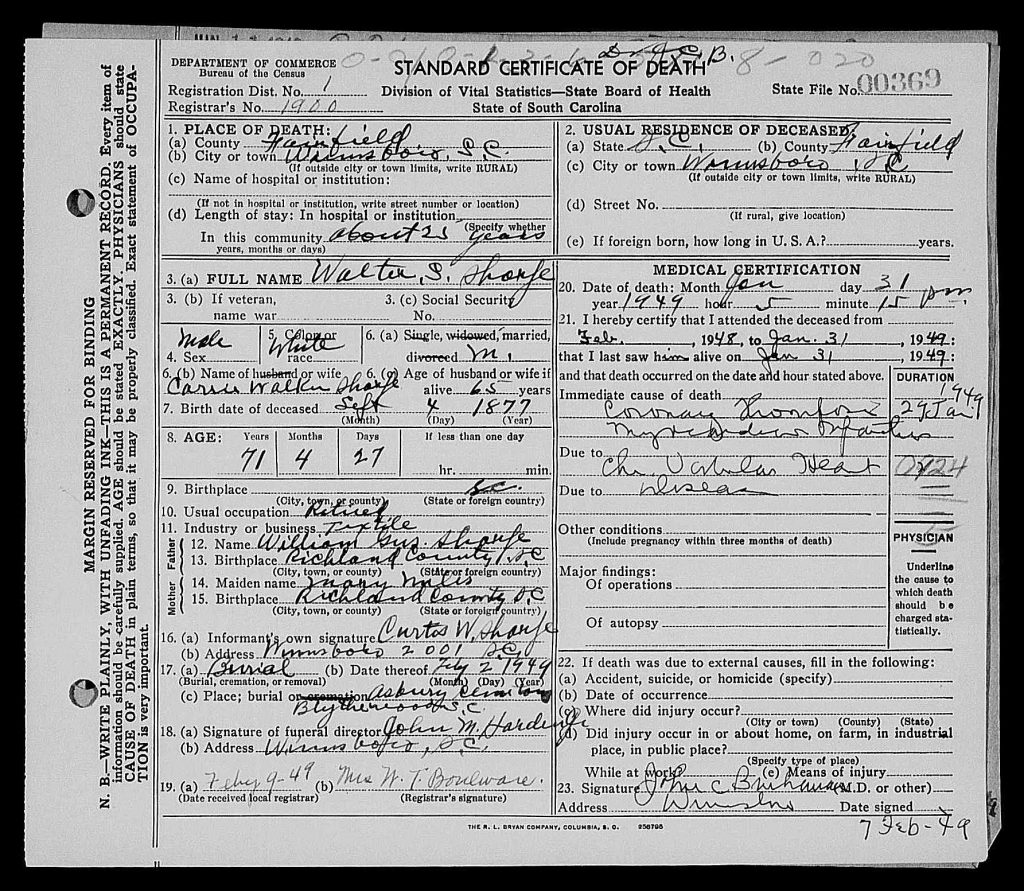 MARGIN RESERVED FOR BINDING
N. B.—WRITE PLAINLY, WITH UNFADING INK—THIS IS A PERMANENT RECORD. Every item of
information should be carefully supplied. AGE should be stated EXACTLY. PHYSICIANS should state
CAUSE OF DEATH in plain terms, so that it may be properly classified. Exact statement of OCCUPA-
TION is very important.
DEPARTMENT OF COMMERCE
Bureau of the Census
Registration Dist. No. 1
Registrar's No. 1900
STANDARD CERTIFICATE OF DEATH
Division of Vital Statistics—State Board of Health
State of South Carolina
8-020
State File No. 00369
1. PLACE OF DEATH:
(a) County Fairfield
(b) City or town Winnsboro, S.C.
(If outside city or town limits, write RURAL)
(c) Name of hospital or institution:
(If not in hospital or institution, write street number or location)
(d) Length of stay: In hospital or institution
(Specify whether
In this community about 25 years
years, months or days)
2. USUAL RESIDENCE OF DECEASED:
(a) State S.C. (b) County Fairfield
(c) City or town Winnsboro, SC
(If outside city or town limits, write RURAL)
(d) Street No.
(If rural, give location)
(e) If foreign born, how long in U. S. A.? years.
3. (a) FULL NAME Walter S. Sharpe
3. (b) If veteran,
name war
3. (c) Social Security
No.
4. Sex Male
5. Color or
race White
6. (a) Single, widowed, married,
divorced M.
6. (b) Name of husband or wife
Carrie Walker Sharpe
6. (c) Age of husband or wife if
alive 65 years
7. Birth date of deceased Sept 4 1877
(Month) (Day) (Year)
8. AGE: Years Months Days If less than one day
71 4 27 hr. min.
9. Birthplace S.C.
(City, town, or county) (State or foreign country)
10. Usual occupation Retired
11. Industry or business Textile
Father
12. Name William Gus. Sharpe
13. Birthplace Richland County, S.C
(City, town, or county) (State or foreign country)
Mother
14. Maiden name Mary Miles
15. Birthplace Richland County S.C
(City, town, or county) (State or foreign country)
16. (a) Informant's own signature Curtis W. Sharpe
(b) Address Winnsboro S.C.
17. (a) Burial (b) Date thereof Feby 2 1949
(Burial, cremation, or removal) (Month) (Day) (Year)
(c) Place; burial or cremation Asbury Cemetery
Blythewood S.C.
18. (a) Signature of funeral director John M. Harden Jr
(b) Address Winnsboro, S.C.
19. (a) Feby 9-49 (b) Mrs W. T. Boulware.
(Date received local registrar) (Registrar's signature)
MEDICAL CERTIFICATION
20. Date of death: Month Jan day 31
year 1949 hour 5 minute 15 pm.
21. I hereby certify that I attended the deceased from
Feb. , 1948, to Jan. 31 , 1949:
that I last saw him alive on Jan 31 , 1949:
and that death occurred on the date and hour stated above.
DURATION
Immediate cause of death 1949
Coronary Thrombosis 29 Jan
Myocardial Infarction
Due to Chr Valvular Heart
Due to disease
Other conditions
(Include pregnancy within three months of death)
PHYSICIAN
Underline
the cause to
which death
should be
charged sta-
tistically.
Major findings:
Of operations
Of autopsy
22. If death was due to external causes, fill in the following:
(a) Accident, suicide, or homicide (specify)
(b) Date of occurrence
(c) Where did injury occur?
(City or town) (County) (State)
(d) Did injury occur in or about home, on farm, in industrial
place, in public place?
(Specify type of place)
While at work (e) Means of injury
23. Signature John C Buchanan (M.D. or other)
Address Winnsboro Date signed
7 Feb-49
THE R. L. BRYAN COMPANY, COLUMBIA, S. C. 256795